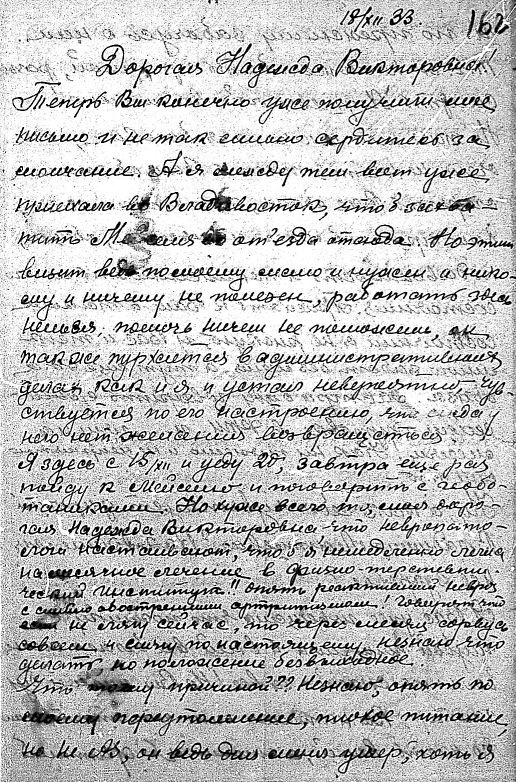 18/XII 33.
162
Дорогая Надежда Викторовна!
Теперь Вы конечно уже получили мое
письмо и не так сильно сердитесь за
молчание. А я между тем вот уже
приехала во Владивосток, чтоб захва-
тить до от'езда отсюда. Но этот
визит ведь по моему и нужен а нико-
му и ничему не полезен, работать здесь
нельзя, помочь ничем не поможешь, он
так же в административных
делах как и я и устал невероятно. Чув-
ствуется по его настроению, что сюда у
него нет желания возвращаться.
Я здесь с 15/XII и уеду 20, завтра еще раз
пойду к и поговорить с геобо-
таниками. Но хуже всего то, моя доро-
гая Надежда Викторовна что невропато-
логи настаивают, чтоб я немедленно легла
на месячное лечение в физио-терапевти-
ческий институт!! опять
с сильно обострившим артритизмом! Говорят что
если не лягу сейчас, то через месяц сорвусь
совсем и слягу по настоящему, незнаю что
делать, но положение безвыходное.
Что тому причиной?? Незнаю, опять по
моему переутомление, плохое питание,
но не он ведь для меня умер, хоть и